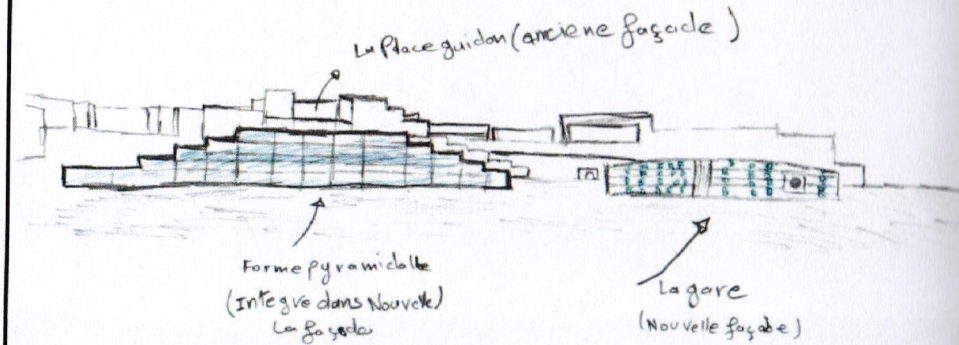 La Place guidon (anciene façade)
Forme pyramidalle
(Integre dans Nouvelle)
La façade
La gare
(Nouvelle façade)